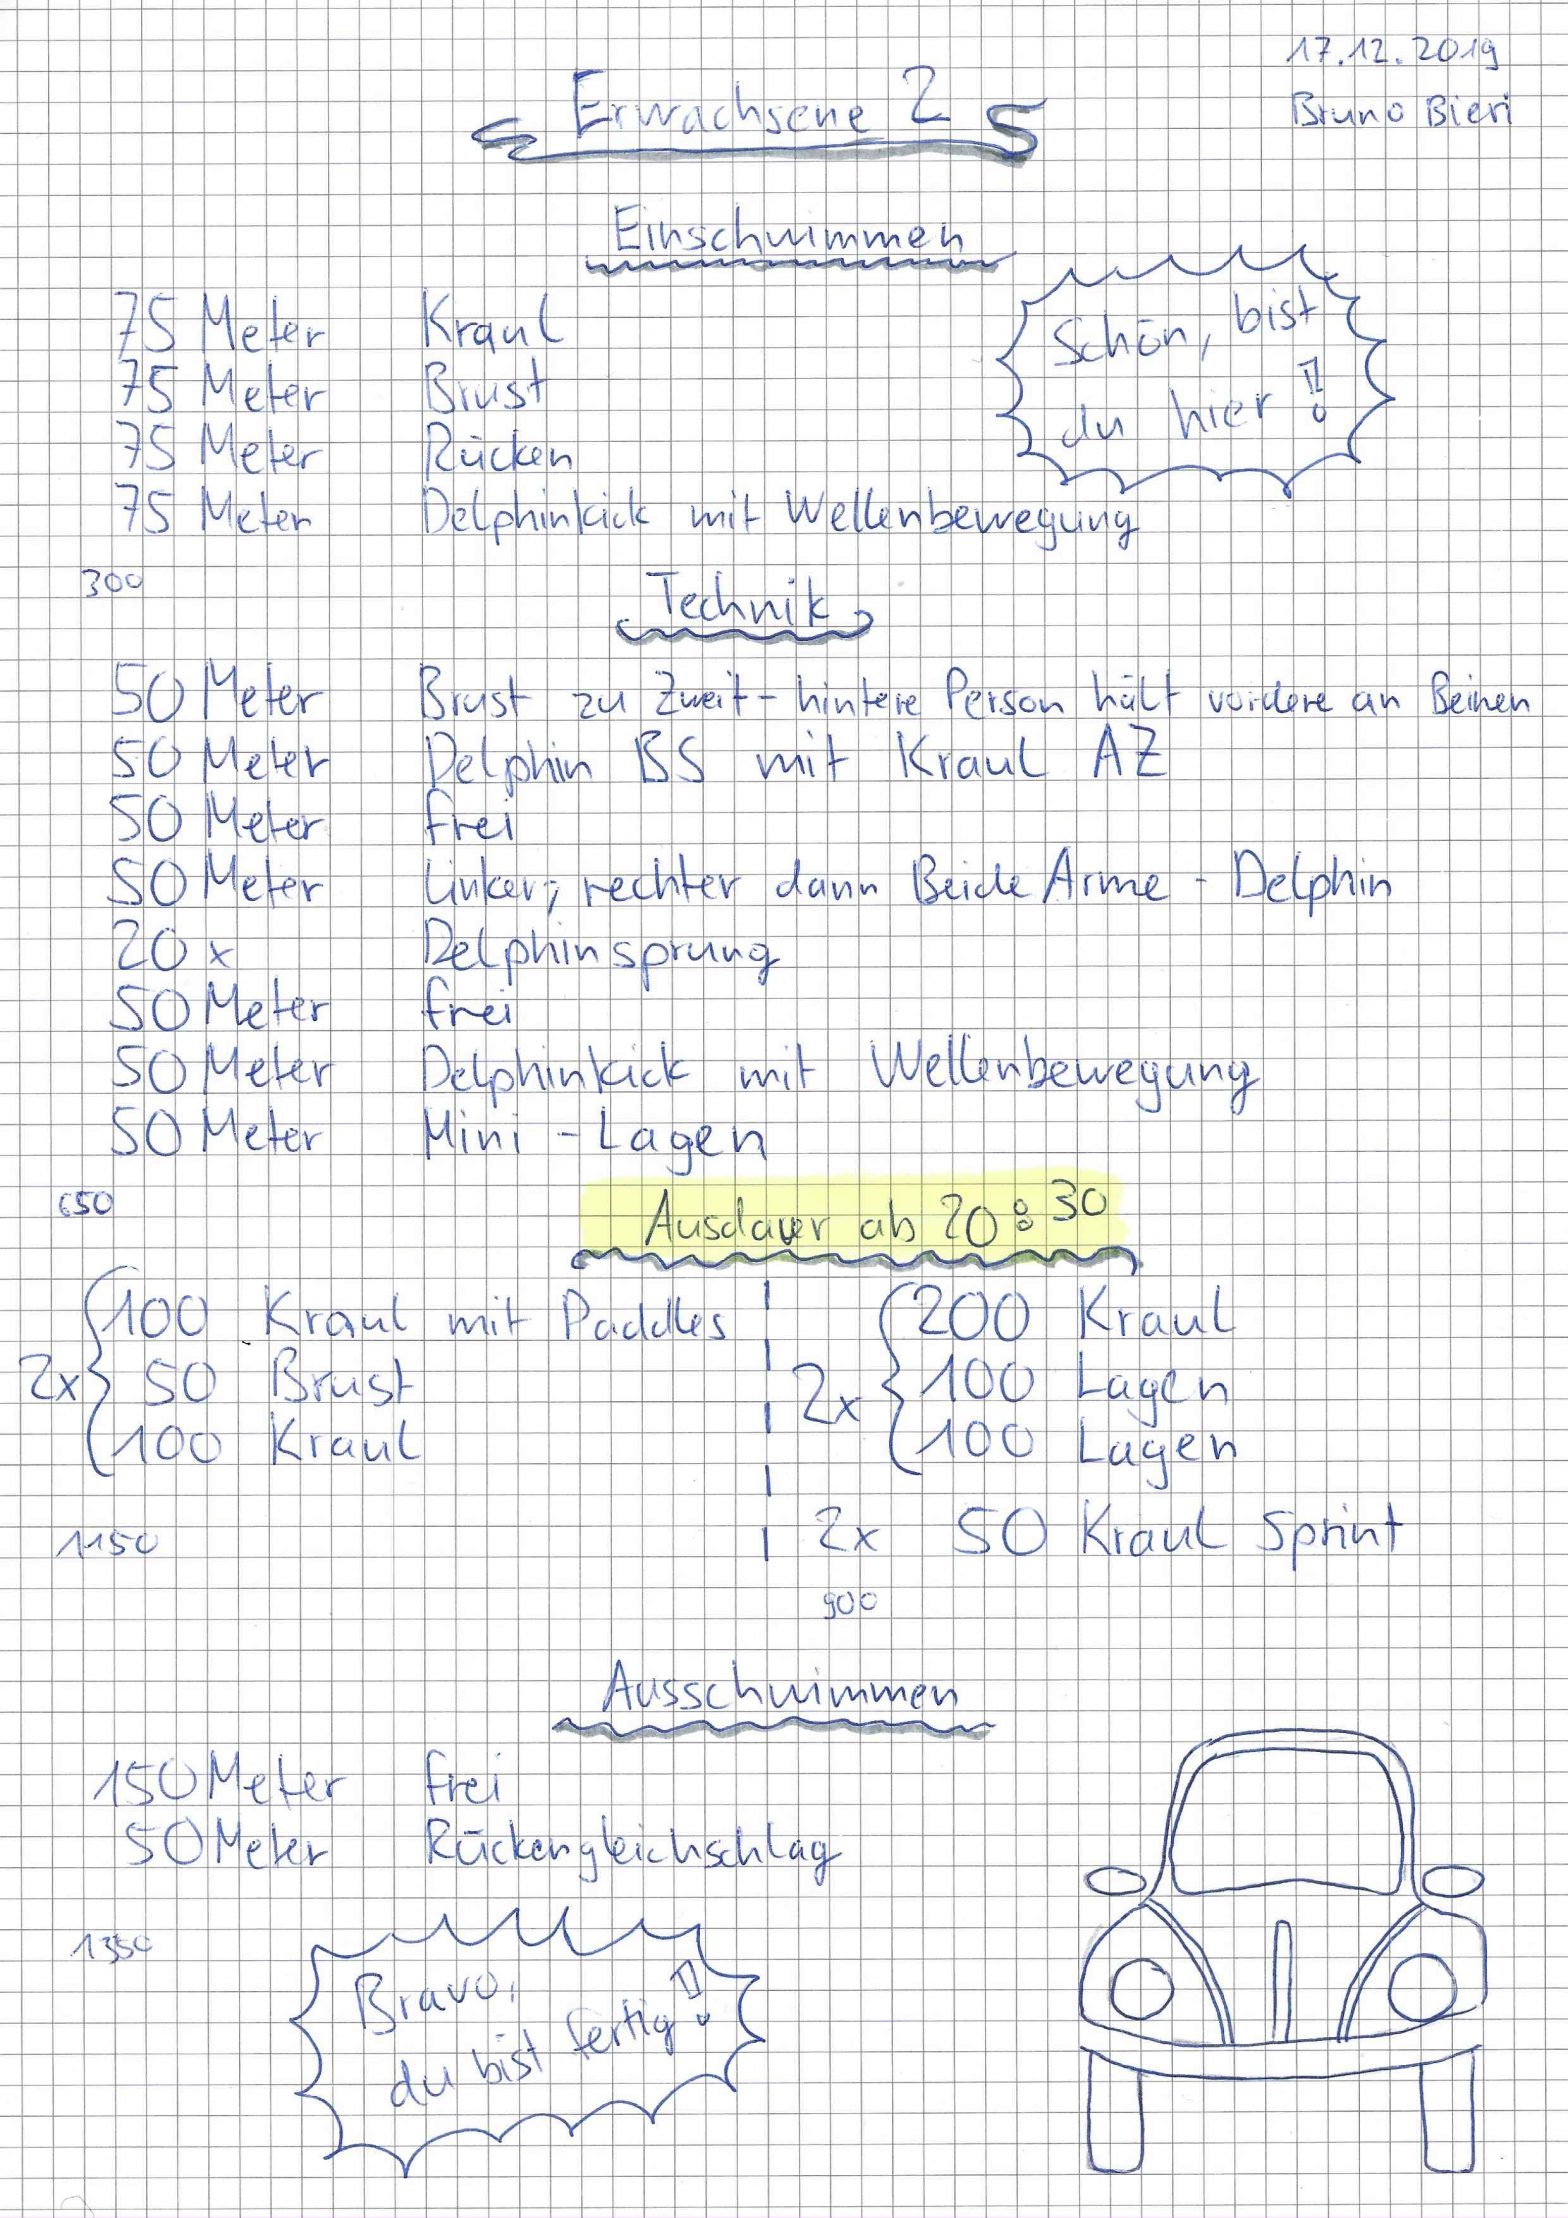 17.12.2019
Bruno Bieri
Erwachsene 2
Einschwimmen
75 Meter Kraul
75 Meter Brust
75 Meter Rücken
75 Meter Delphinkick mit Wellenbewegung
Schön, bist
du hier!!
300
Technik
50 Meter Brust zu Zweit - hintere Person hält vordere an Beinen
50 Meter Delphin BS mit Kraul AZ
50 Meter frei
50 Meter Linker, rechter dann Beide Arme - Delphin
20 x Delphinsprung
50 Meter frei
50 Meter Delphinkick mit Wellenbewegung
50 Meter Mini - Lagen
650
Ausdauer ab 20:30
2x
100 Kraul mit Paddles
50 Brust
100 Kraul
1150
2x
200 Kraul
100 Lagen
100 Lagen
2x 50 Kraul Sprint
900
Ausschwimmen
150 Meter frei
50 Meter Rückengleichschlag
1350
Bravo,
du bist fertig!!